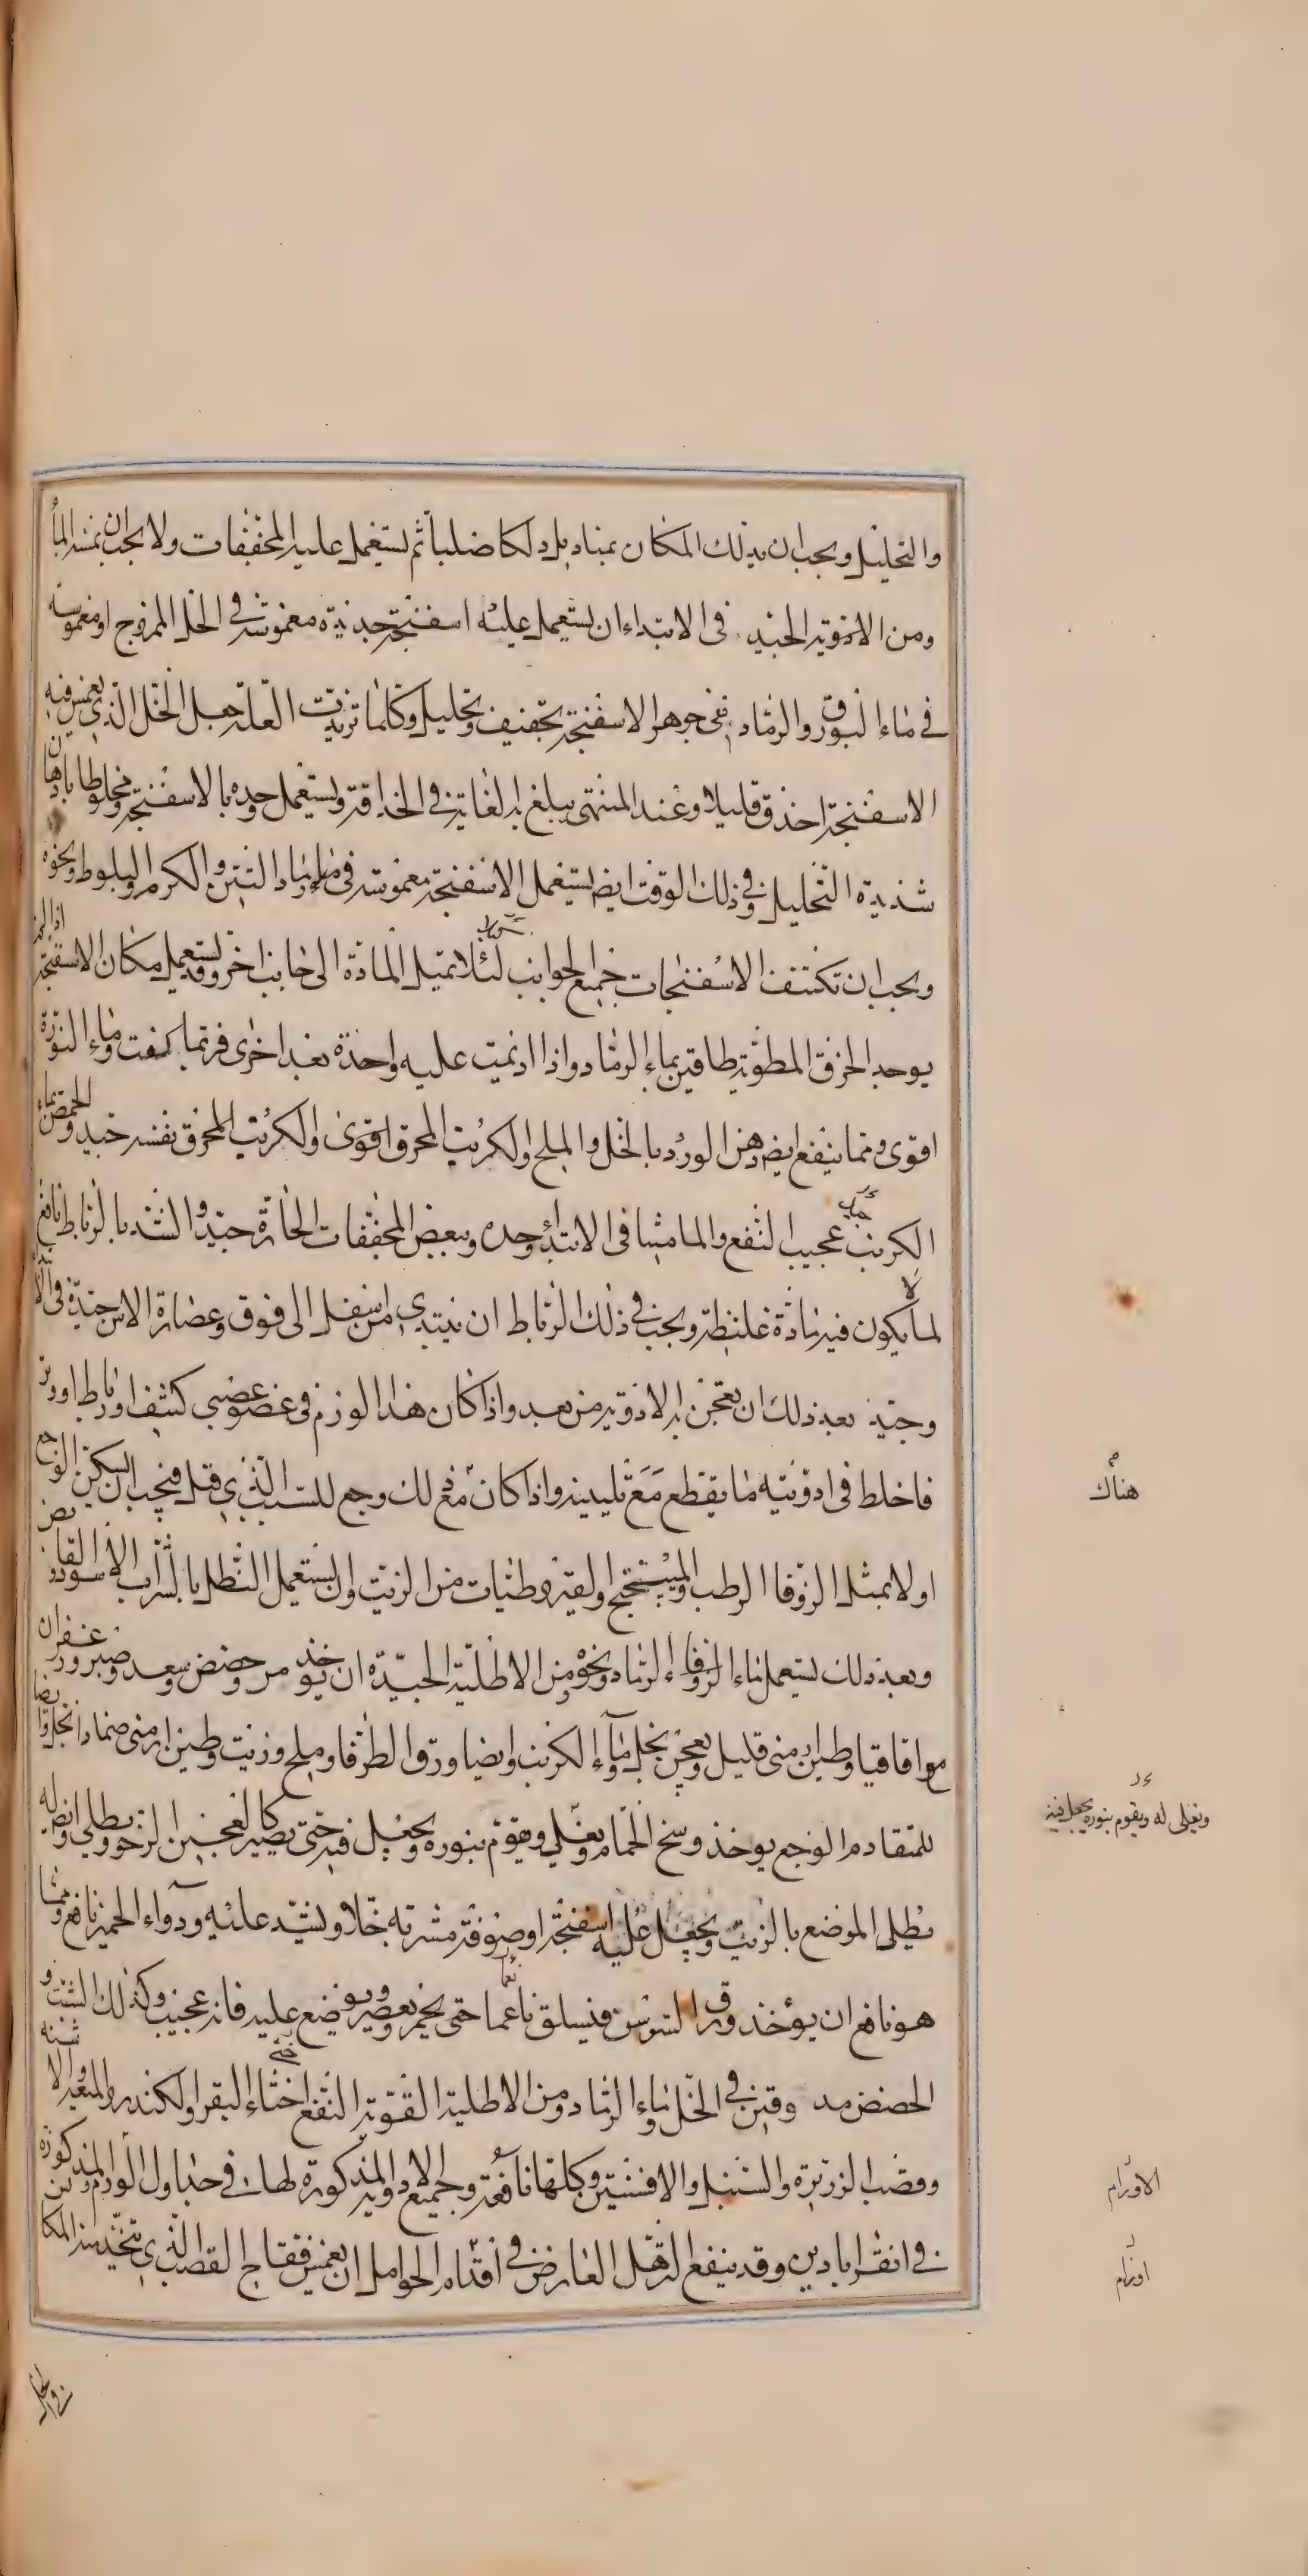 والتحليل ويجب ان يدلك المكان بمناديل دلكا صلبا ثم يستعمل عليه المجففات ولا يجب ان يمسه الماء
ومن الادوية الجيدة في الابتداء ان يستعمل عليه اسفنجة جديدة مغموسة في الخل الممزوج او مغموسة
في ماء البورق والرماد ففي جوهر الاسفنجة تجفيف وتحليل وكلما تزيدت العلة جعل الخل الذي يغمس فيه
الاسفنجة احذق قليلا وعند المنتهى يبلغ به الغاية في الحذاقة ويستعمل وحده بالاسفنجة ومخلوطا بادهان
شديدة التحليل وفي ذلك الوقت ايضا يستعمل الاسفنجة مغموسة في ماء رماد التين والكرم والبلوط ونحوه
ويجب ان تكتنف الاسفنجات جميع الجوانب لئلا تميل المادة الى جانب اخر وقد يستعمل مكان الاسفنجة اذا لم
يوجد الخرق المطوية طاقين بماء الرماد واذا اديمت عليه واحدة بعد اخرى فربما كفت وماء النورة
اقوى ومما ينفع ايضا دهن الورد بالخل والملح والكرنب المحرق اقوى والكرنب المحرق بنفسه جيد والحمص بماء
الكرنب عجيب النفع والماميثا في الابتداء وحده وببعض المجففات الحارة جيد والشد بالرباط نافع
لما لا يكون فيه مادة غليظة ويجب في ذلك الرباط ان يبتدي من اسفل الى فوق وعصارة الاس جيدة في الابتداء
وجيد بعد ذلك ان يعجن به الادوية من بعد واذا كان هذا الورم في عضو عصبي كثيف او رباط او وتر
فاخلط في ادويته ما يقطع مع تليين واذا كان مع ذلك وجع للسبب الذي قيل فيجب ان يسكن الوجع
اولا بمثل الزوفا الرطب والميبختج ولقيروطيات من الزيت وان يستعمل النطل بالشراب الاسود القابض
وبعد ذلك يستعمل ماء الزوفا وماء الرماد ونحوه ومن الاطلية الجيدة ان يوخذ مر وحضض وسعد وصبر وزعفران
واقاقيا وطين ارمني قليل ويعجن بخل وماء الكرنب وايضا ورق الطرفا وملح وزيت وطين ارمني ضمادا بخل وايضا
للمتقادم الوجع يوخذ وسخ الحمام ويغلي ويقوم بنوره ويجعل فيه حتى يصير كالعجين الرخو ويطلي وايضا له
يطلى الموضع بالزيت ويجعل عليه اسفنجة او صوفة مشربة خلا ويشد عليه ودواء الحمير نافع ومما
هو نافع ان يؤخذ ورق السوس فيسلق ناعما حتى يخيم ويعصر ويوضع عليه فانه عجيب وكذلك الشبث و
الحضض مدوفين في الخل وماء الرماد ومن الاطلية القوية النفع اخثاء البقر والكندر والميعة والاشنه
وقصب الزريرة والسنبل والافسنتين وكلها نافعة وجميع الادوية المذكورة لها في جداول الاورام المذكورة من
في اقراباذين وقد ينفع الترهل العارض في اقدام الحوامل ان يغمس فقاح القصب الذي يتخذ منه المكا
هناك
ويغلى له ويقوم بنوره يجعل فيه
الاورام
اورام